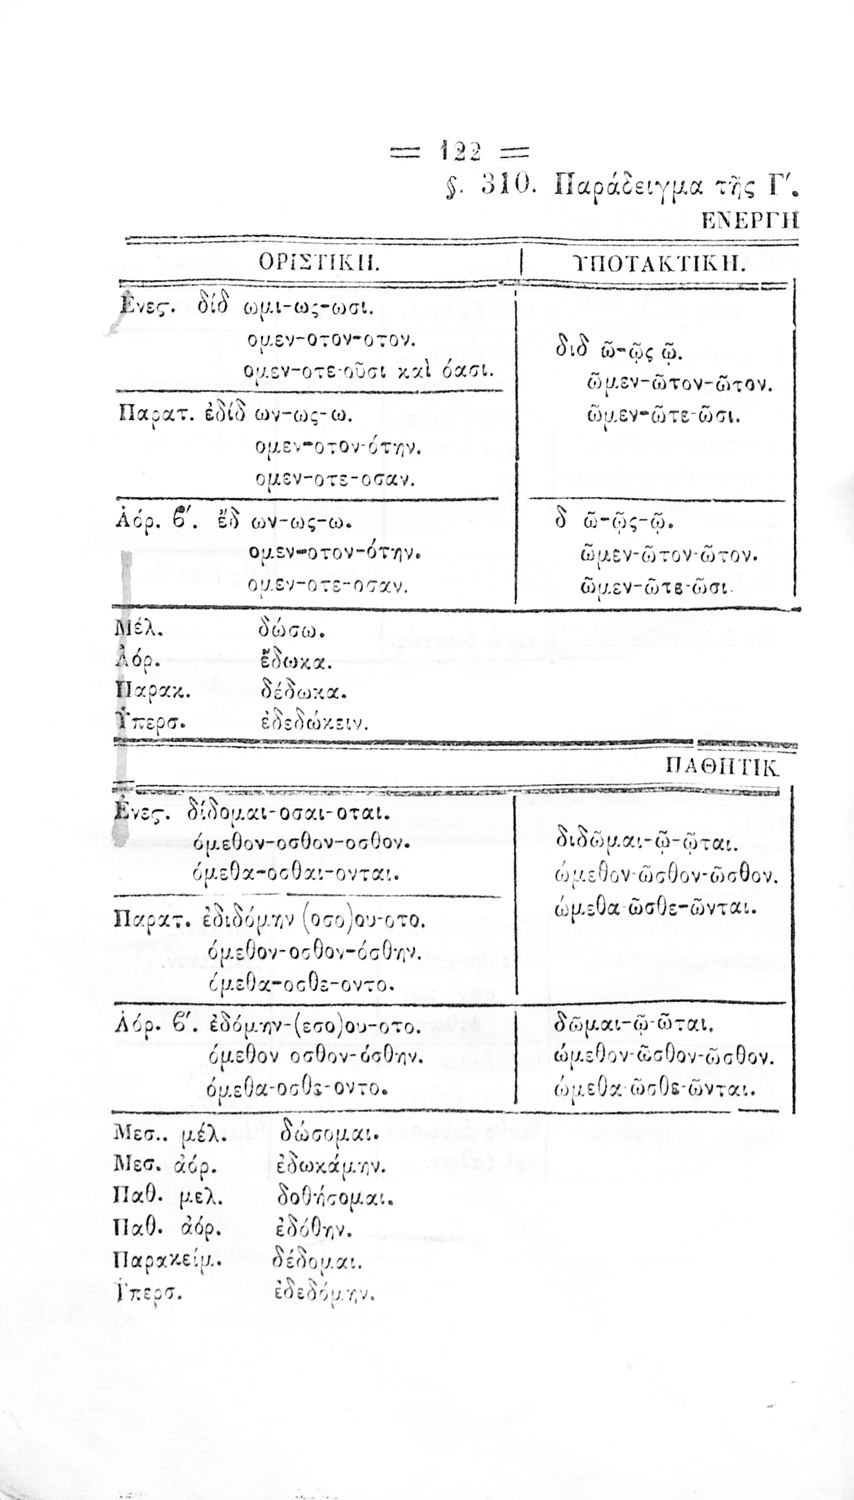 = 122 =
§. 310. Παράδειγμα τῆς Γ′.
ΕΝΕΡΓΗ
ΟΡΙΣΤΙΚΗ. ΥΠΟΤΑΚΤΙΚΗ.
Ἐνεϛ. δίδ ωμι-ως-ωσι.
ομεν-οτον-οτον.
ομεν-οτε-οῦσι καὶ όασι.
διδ ῶ-ῷς ῷ.
ῶμεν-ῶτον-ῶτον.
ῶμεν-ῶτε-ῶσι.
Παρατ. ἐδίδ ων-ως-ω.
ομεν-οτον-ότην.
ομεν-οτε-οσαν.
Ἀόρ. β′. ἔδ ων-ως-ω.
ομεν-οτον-ότην.
ομεν-οτε-οσαν.
δ ῶ-ῷς-ῷ.
ῶμεν-ῶτον-ῶτον.
ῶμεν-ῶτε-ῶσι.
Μέλ. δώσω.
Ἀόρ. ἔδωκα.
Παρακ. δέδωκα.
Ὑπερσ. ἐδεδώκειν.
ΠΑΘΗΤΙΚ
Ἐνεϛ. δίδομαι-οσαι-οται.
όμεθον-οσθον-οσθον.
όμεθα-οσθαι-ονται.
διδῶμαι-ῷ-ῷται.
ώμεθον-ῶσθον-ῶσθον.
ώμεθα ῶσθε-ῶνται.
Παρατ. ἐδιδόμην (οσο)ου-οτο.
όμεθον-οσθον-όσθην.
όμεθα-οσθε-οντο.
Ἀόρ. β′. ἐδόμην-(εσο)ου-οτο.
όμεθον οσθον-όσθην.
όμεθα-οσθε-οντο.
δῶμαι-ῷ-ῶται.
ώμεθον-ῶσθον-ῶσθον.
ώμεθα-ῶσθε-ῶνται.
Μεσ.. μέλ. δώσομαι.
Μεσ. ἀόρ. ἐδωκάμην.
Παθ. μελ. δοθήσομαι.
Παθ. ἀόρ. ἐδόθην.
Παρακείμ. δέδομαι.
Ὑπερσ. ἐδεδόμην.